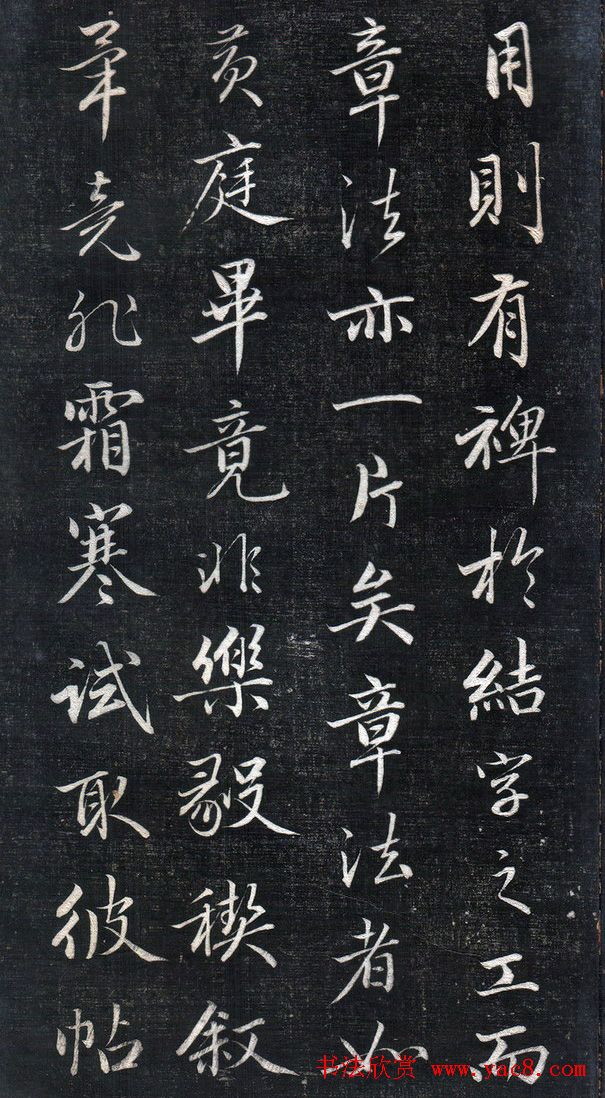 用則有裨於結字之工而
章法亦一片矣章法者如
黄庭畢竟非樂毅稧叙
竟非霜寒試取彼帖
书法欣赏 www.yac8.com